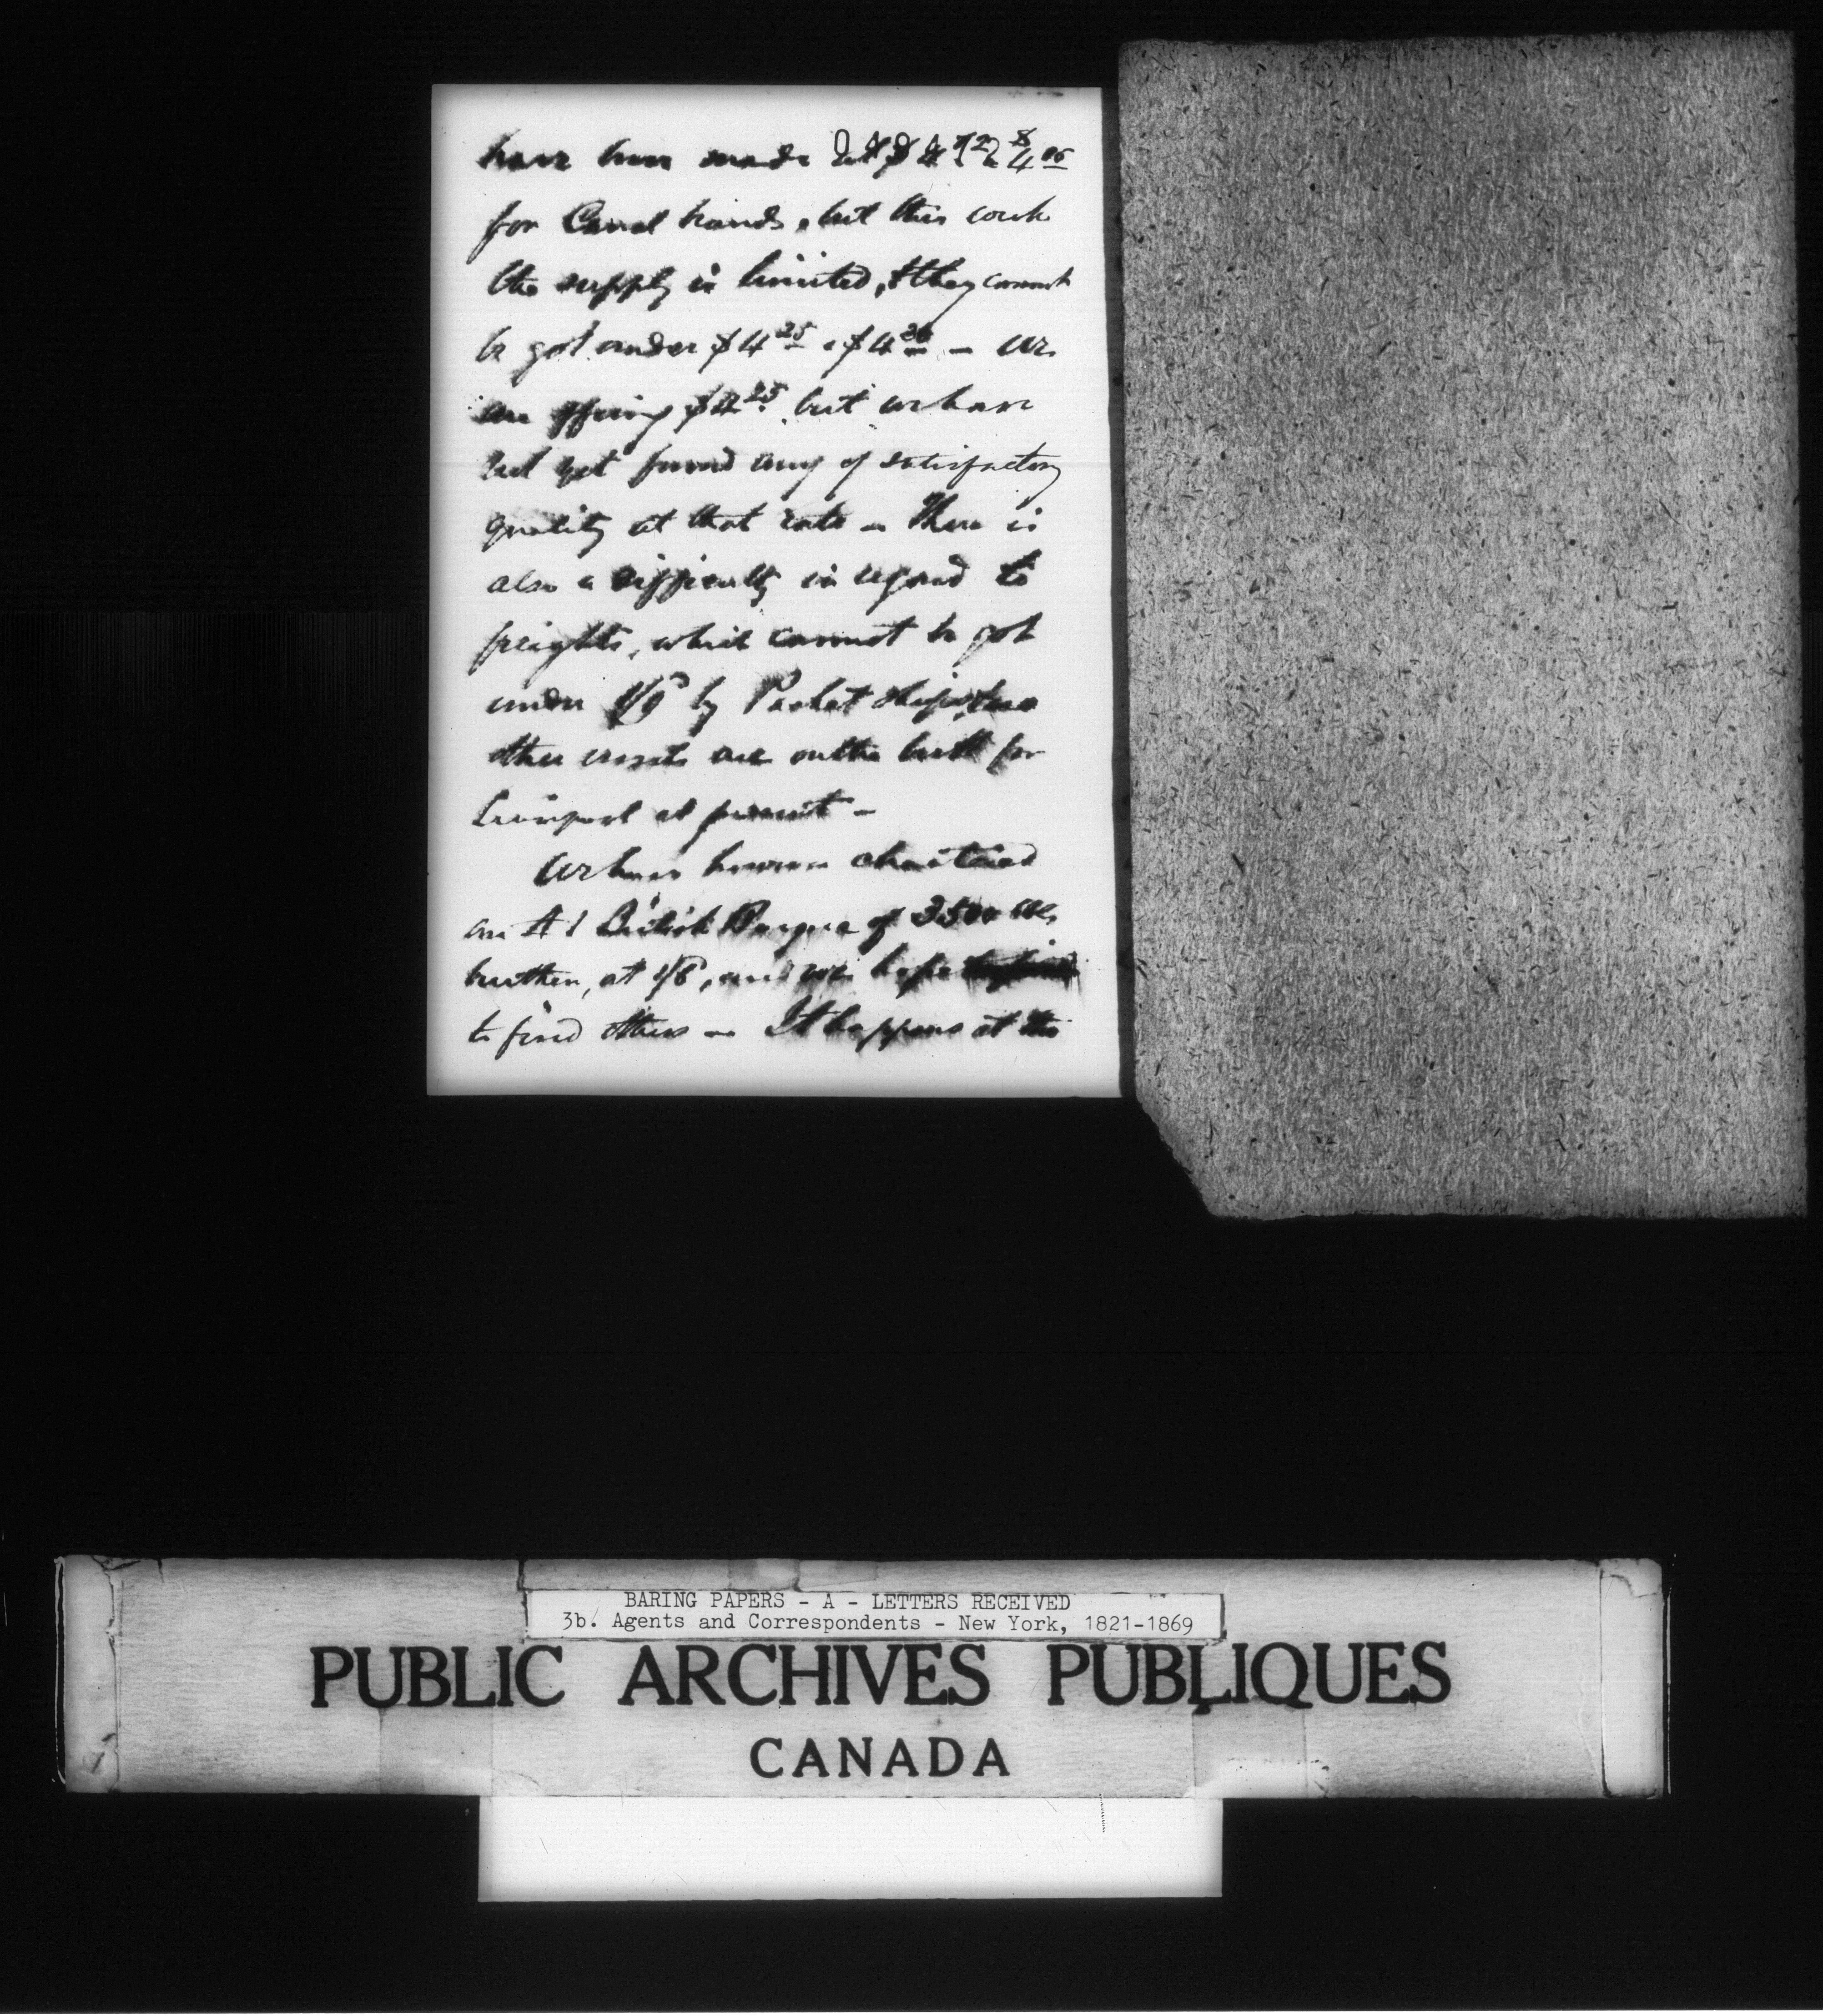 have been made at $4 12 a 4 06
for Canal brands, but this week
the supply is limited, & they cannot
be got under $4 25 a $4 30 — We
are offering $4 25 but we have
not yet found any of satisfactory
quality at that rate — There is
also a difficulty in regard to
freights, which cannot be got
under by Packet ships, &
other vessels are on the berth for
Liverpool at present —
We have however chartered
an A 1 British Barque of 3500 bbls
burthen, at, and we hope
to find others — It happens at the
BARING PAPERS - A - LETTERS RECEIVED
3b. Agents and Correspondents - New York, 1821-1869
PUBLIC ARCHIVES PUBLIQUES
CANADA